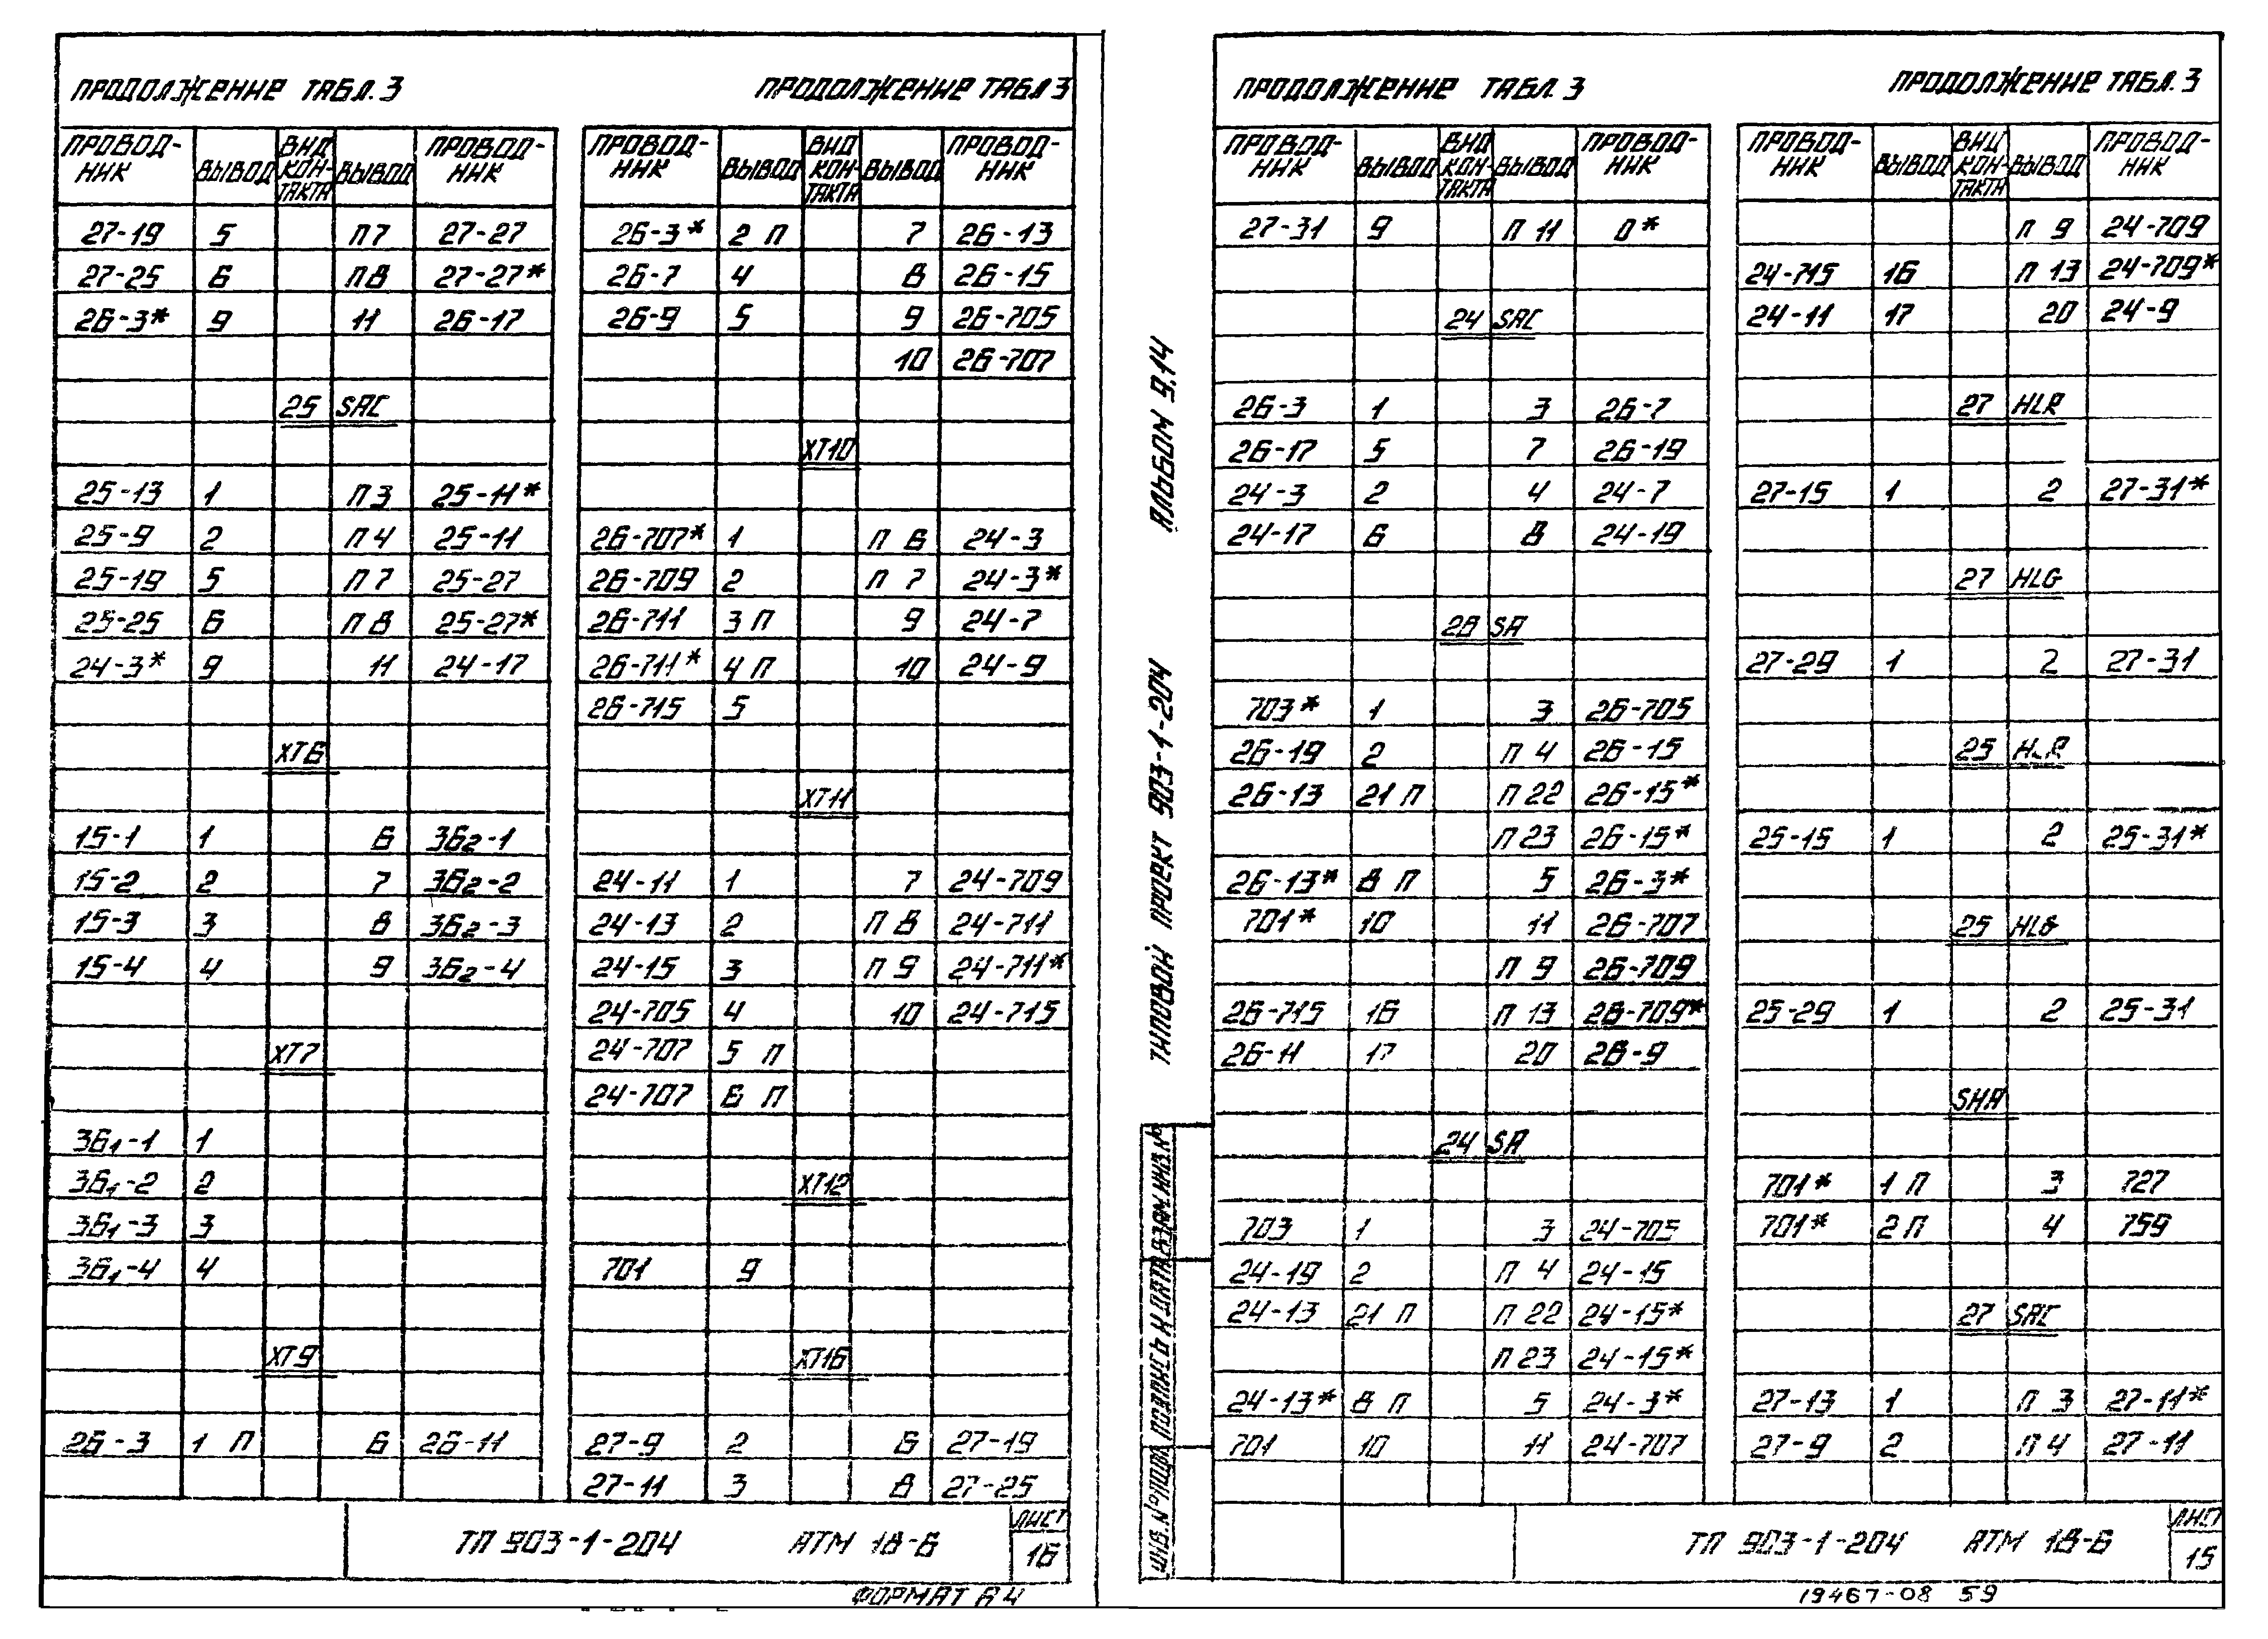 ПРОДОЛЖЕНИЕ ТАБЛ. 3
ПРОВОД-НИК ВЫВОД ВИД КОН-ТАКТА ВЫВОД ПРОВОД-НИК
27-19 5 П7 27-27
27-25 6 П8 27-27*
26-3* 9 11 26-17
25 SAC
25-13 1 П3 25-11*
25-9 2 П4 25-11
25-19 5 П7 25-27
25-25 6 П8 25-27*
24-3* 9 11 24-17
XT6
15-1 1 6 36₂-1
15-2 2 7 36₂-2
15-3 3 8 36₂-3
15-4 4 9 36₂-4
XT7
36₁-1 1
36₁-2 2
36₁-3 3
36₁-4 4
XT9
26-3 1 П 6 26-11
ПРОДОЛЖЕНИЕ ТАБЛ 3
ПРОВОД-НИК ВЫВОД ВИД КОН-ТАКТА ВЫВОД ПРОВОД-НИК
26-3* 2 П 7 26-13
26-7 4 8 26-15
26-9 5 9 26-705
10 26-707
XT10
26-707* 1 П 6 24-3
26-709 2 П 7 24-3*
26-711 3 П 9 24-7
26-711* 4 П 10 24-9
26-715 5
XT11
24-11 1 7 24-709
24-13 2 П 8 24-711
24-15 3 П 9 24-711*
24-705 4 10 24-715
24-707 5 П
24-707 6 П
XT12
701 9
XT16
27-9 2 6 27-19
27-11 3 8 27-25
ТП 903-1-204 АТМ 18-6
ЛИСТ
16
ФОРМАТ А4
АЛЬБОМ 9.14
ТИПОВОЙ ПРОЕКТ 903-1-204
ВЗАМ.ИНВ.№
ПОДПИСЬ И ДАТА
ИНВ.№ ПОДЛ
ПРОДОЛЖЕНИЕ ТАБЛ. 3
ПРОВОД-НИК ВЫВОД ВИД КОН-ТАКТА ВЫВОД ПРОВОД-НИК
27-31 9 П 11 0*
24 SAC
26-3 1 3 26-7
26-17 5 7 26-19
24-3 2 4 24-7
24-17 6 8 24-19
26 SA
703* 1 3 26-705
26-19 2 П 4 26-15
26-13 21 П П 22 26-15*
П 23 26-15*
26-13* 8 П 5 26-3*
701* 10 11 26-707
П 9 26-709
26-715 16 П 13 26-709*
26-11 17 20 26-9
24 SA
703 1 3 24-705
24-19 2 П 4 24-15
24-13 21 П П 22 24-15*
П 23 24-15*
24-13* 8 П 5 24-3*
701 10 11 24-707
ПРОДОЛЖЕНИЕ ТАБЛ. 3
ПРОВОД-НИК ВЫВОД ВИД КОН-ТАКТА ВЫВОД ПРОВОД-НИК
П 9 24-709
24-715 16 П 13 24-709*
24-11 17 20 24-9
27 HLR
27-15 1 2 27-31*
27 HLG
27-29 1 2 27-31
25 HLR
25-15 1 2 25-31*
25 HLG
25-29 1 2 25-31
SHA
701* 1 П 3 727
701* 2 П 4 759
27 SAC
27-13 1 П 3 27-11*
27-9 2 П 4 27-11
ТП 903-1-204 АТМ 18-6
ЛИСТ
15
19467-08 59